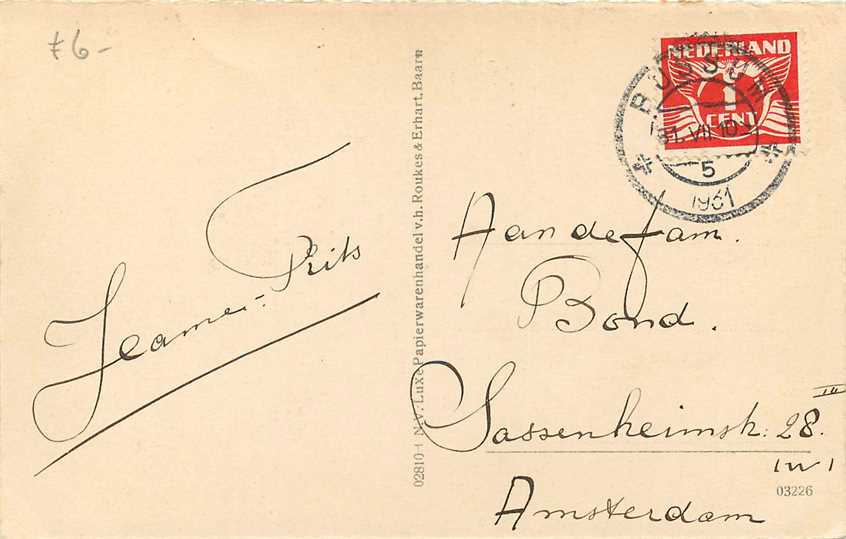 f 6-
NEDERLAND
1
CENT
BUSSUM
31.VII.10
5
1931
Jeanne - Frits
02810-1 N.V. Luxe Papierwarenhandel v.h. Roukes & Erhart, Baarn
Aan de fam.
Bond.
Sassenheimstr: 28 III
Amsterdam
03226